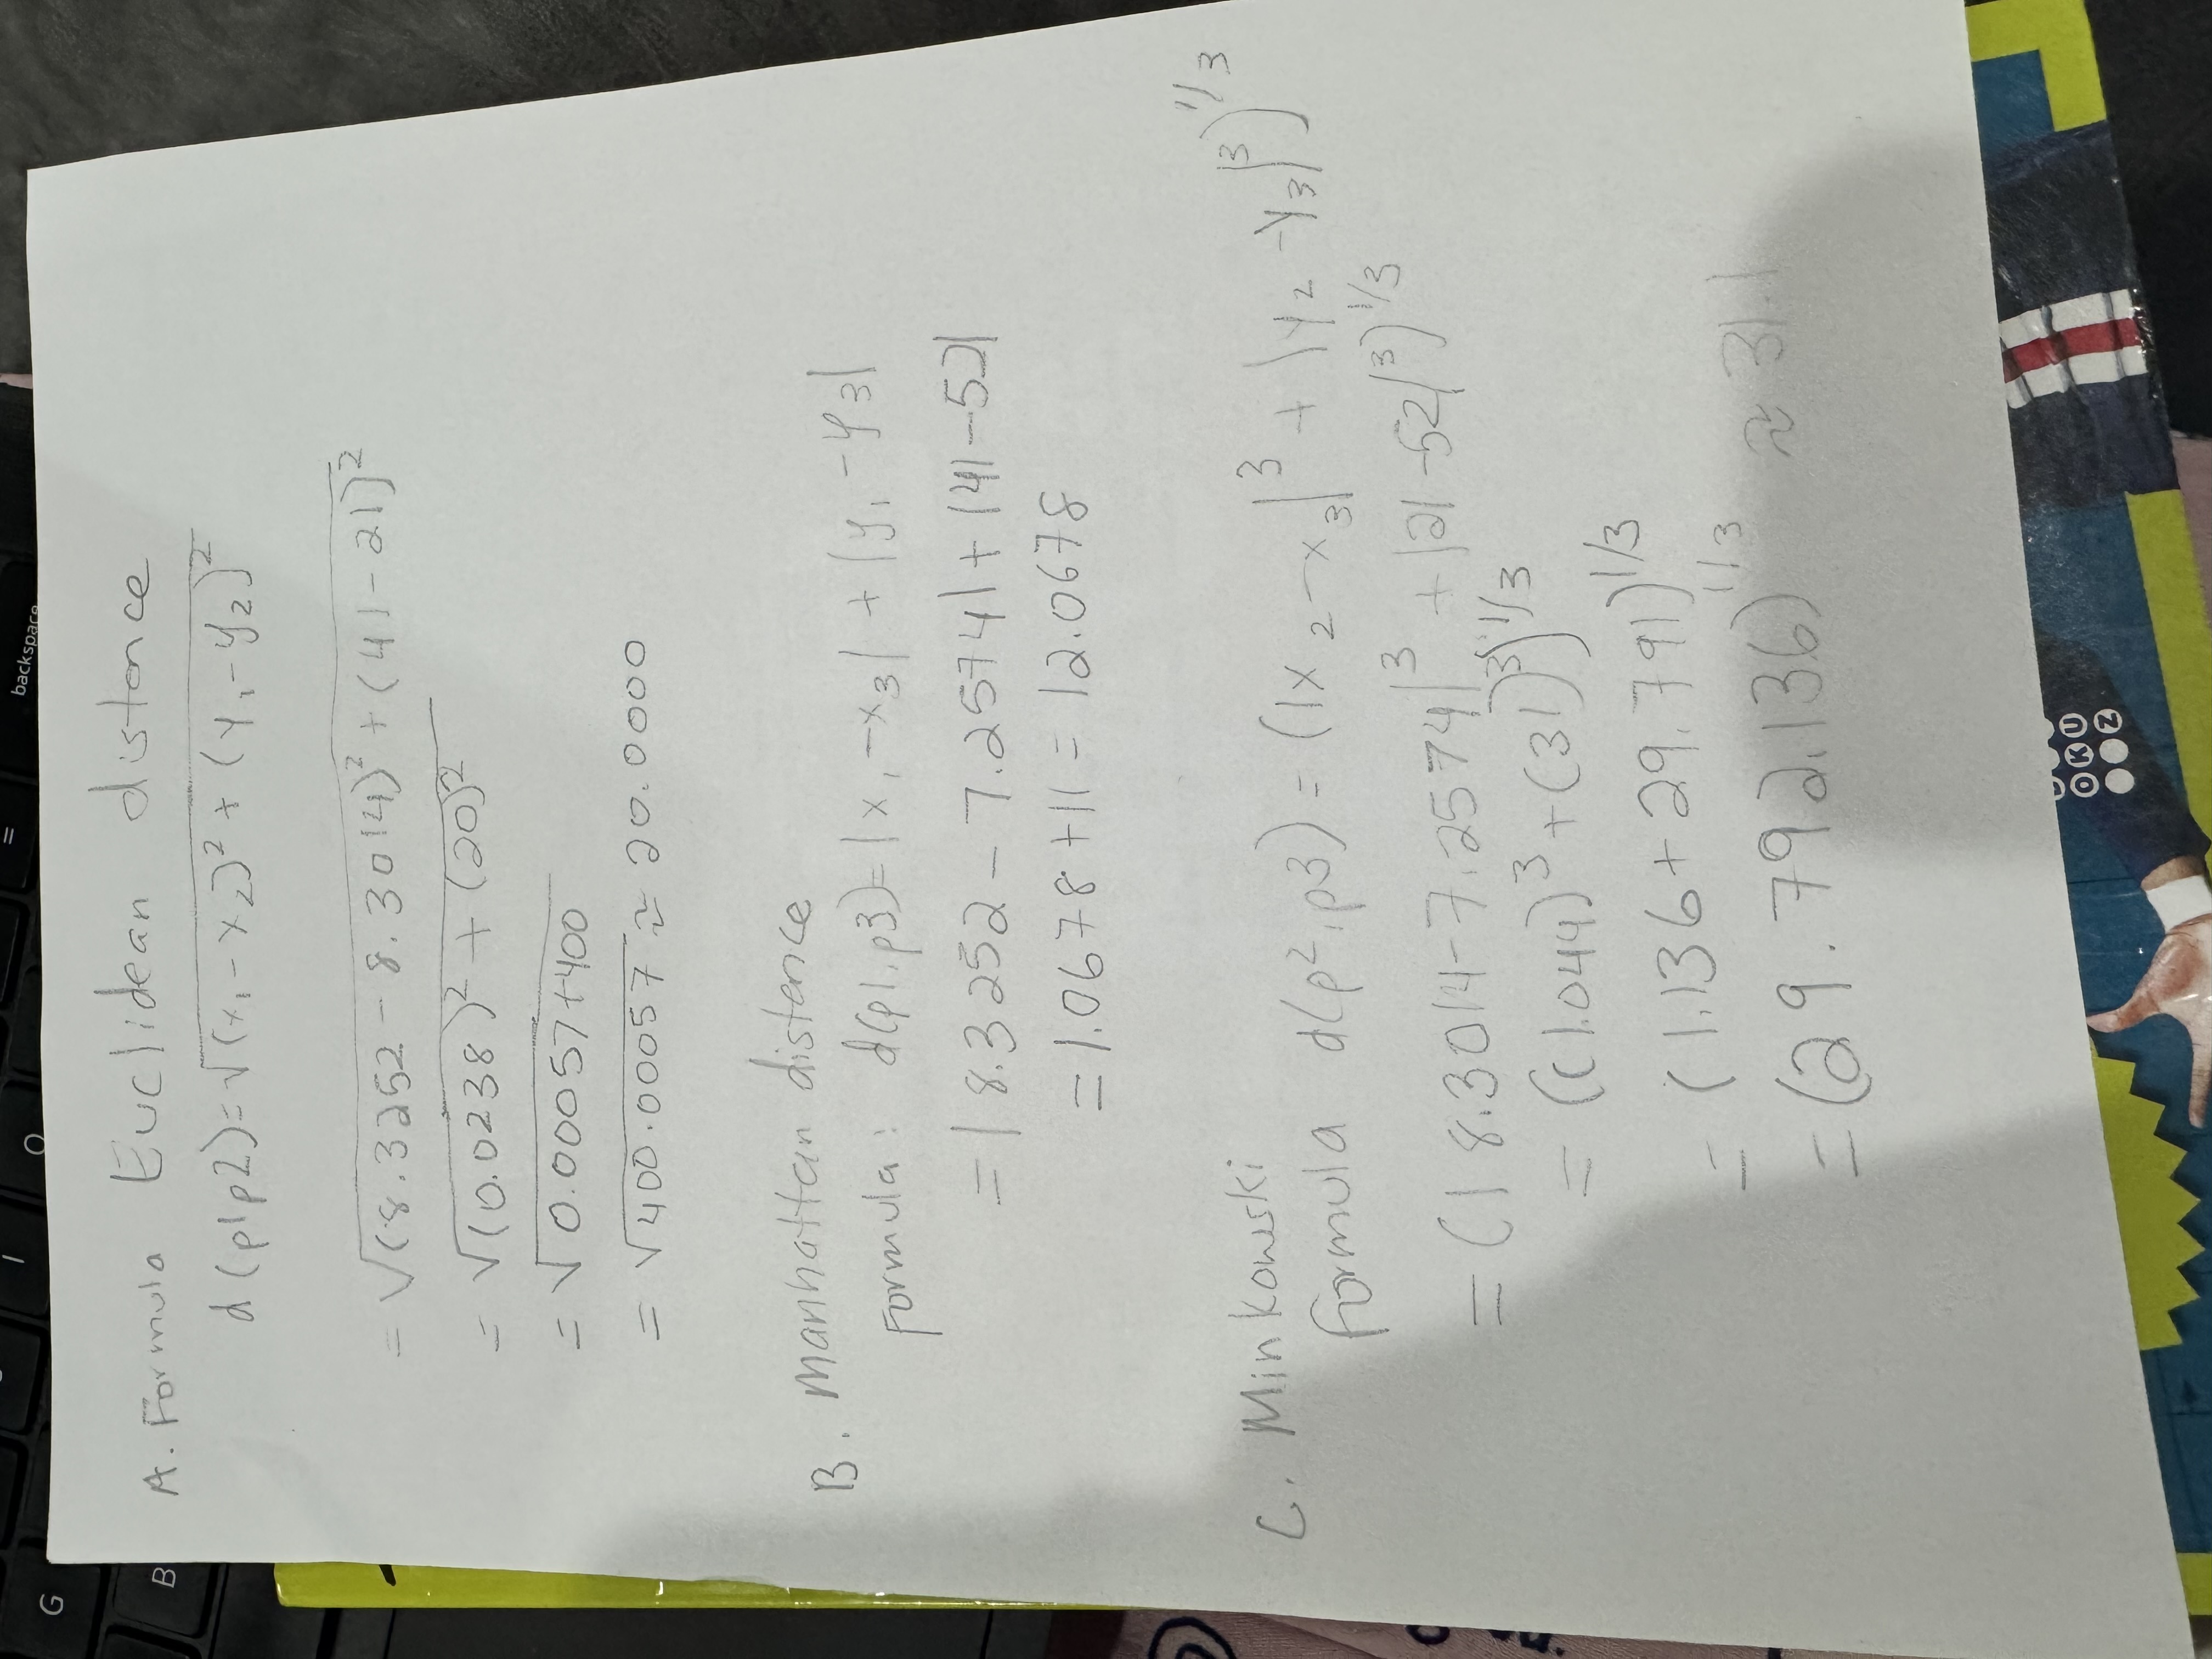 G
I
O
=
backspace
B
A. Formula Euclidean distance
d(p1p2)=√(x₁-x₂)² + (y₁-y₂)²
= √(8.3252 - 8.3014)² + (41-21)²
= √(0.0238)² + (20)²
= √0.00057+400
= √400.00057 ≈ 20.0000
B. Manhattan distence
Formula: d(p1,p3)=|x₁-x₃| + |y₁-y₃|
=|8.3252 - 7.2574|+|41-52|
=1.0678+11= 12.0678
C. Minkowski
formula d(p2,p3) = (|x₂-x₃|³ + |y₂-y₃|³)^1/3
= (|8.3014-7.2574|³ + |21-52|³)^1/3
= ((1.044)³+(31)³)^1/3
= (1.136+29.791)^1/3
= (29.792.136)^1/3 ≈ 31.1
OKU
Z